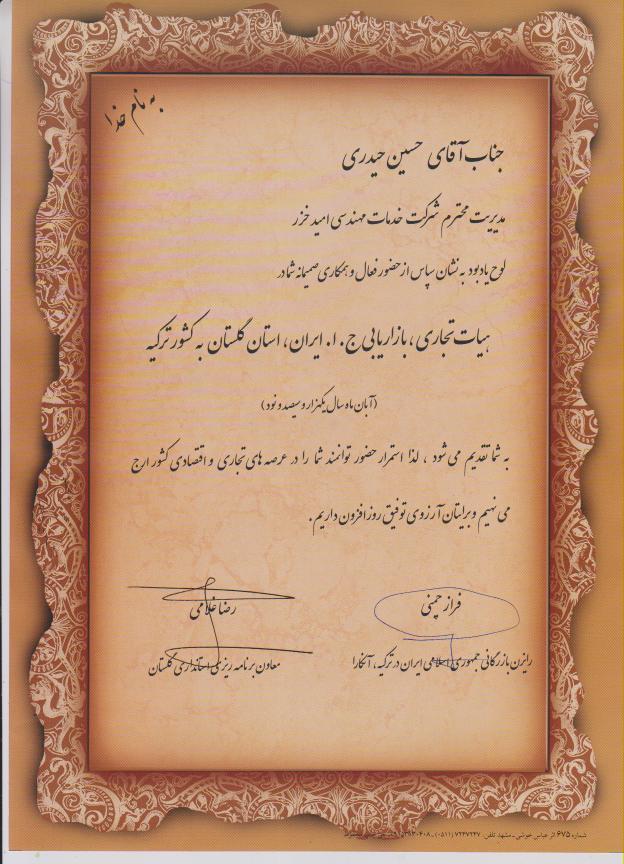 به نام خدا
جناب آقای حسین حیدری
مدیریت محترم شرکت خدمات مهندسی امید خزر
لوح یادبود به نشان سپاس از حضور فعال و همکاری صمیمانه شما در
هیات تجاری، بازاریابی ج. ا. ایران، استان گلستان به کشور ترکیه
(آبان ماه سال یکهزار و سیصد و نود)
به شما تقدیم می شود ، لذا استمرار حضور توانمند شما را در عرصه های تجاری و اقتصادی کشور ارج
می نهیم و برایتان آرزوی توفیق روز افزون داریم.
فراز چمنی
رضا غلامی
رایزن بازرگانی جمهوری اسلامی ایران در ترکیه، آنکارا
معاون برنامه ریزی استانداری گلستان
شماره ۶۷۵ اثر عباس خوشی - مشهد تلفن: ۷۲۴۷۲۴۷ (۰۵۱۱)